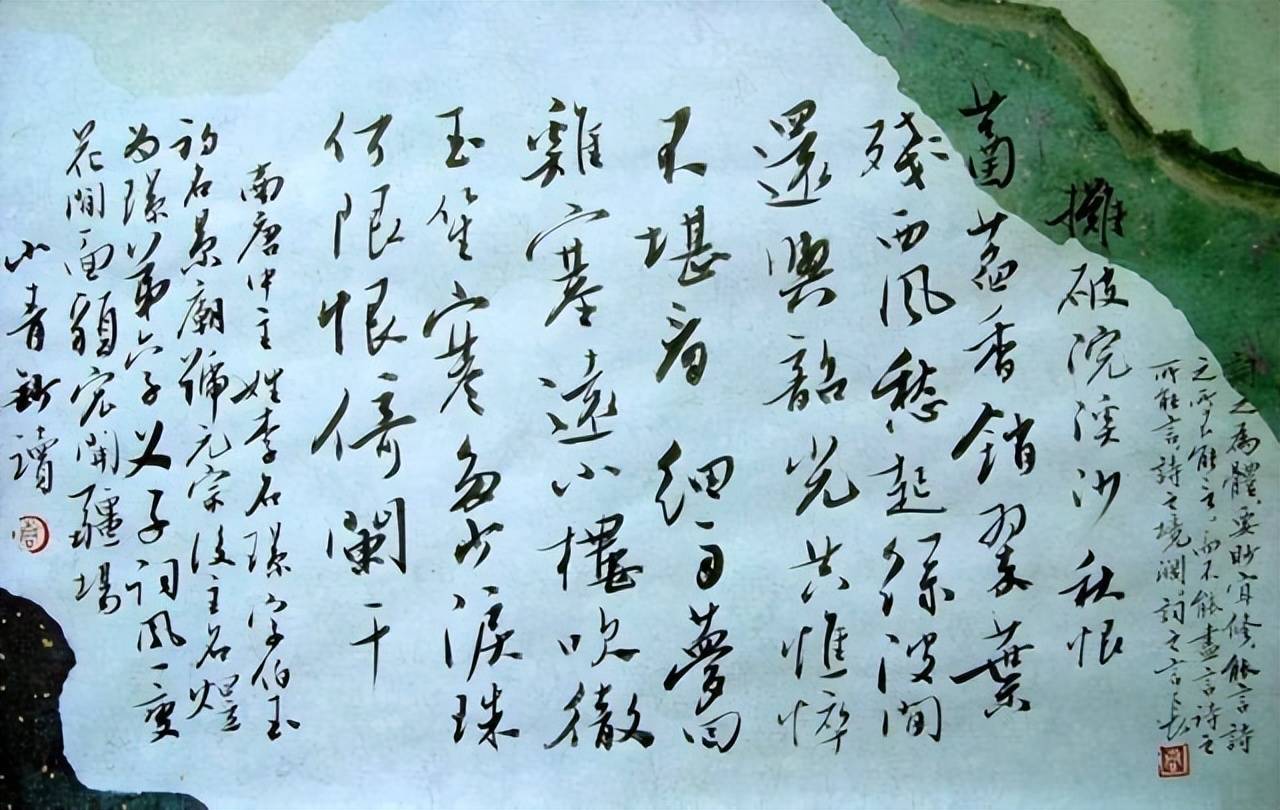 詞之為體，要眇宜修，能言詩
之所不能言，而不能盡言詩之
所能言，詩之境闊，詞之言長
攤破浣溪沙 秋恨
菡萏香銷翠葉
殘西風愁起綠波間
還與韶光共憔悴
不堪看 細雨夢回
雞塞遠小樓吹徹
玉笙寒多少淚珠
何限恨倚闌干
南唐中主姓李名璟字伯玉
初名景廟號元宗後主名煜
為璟第六子父子詞風一變
花間面貌宏開疆場
小青鈔讀